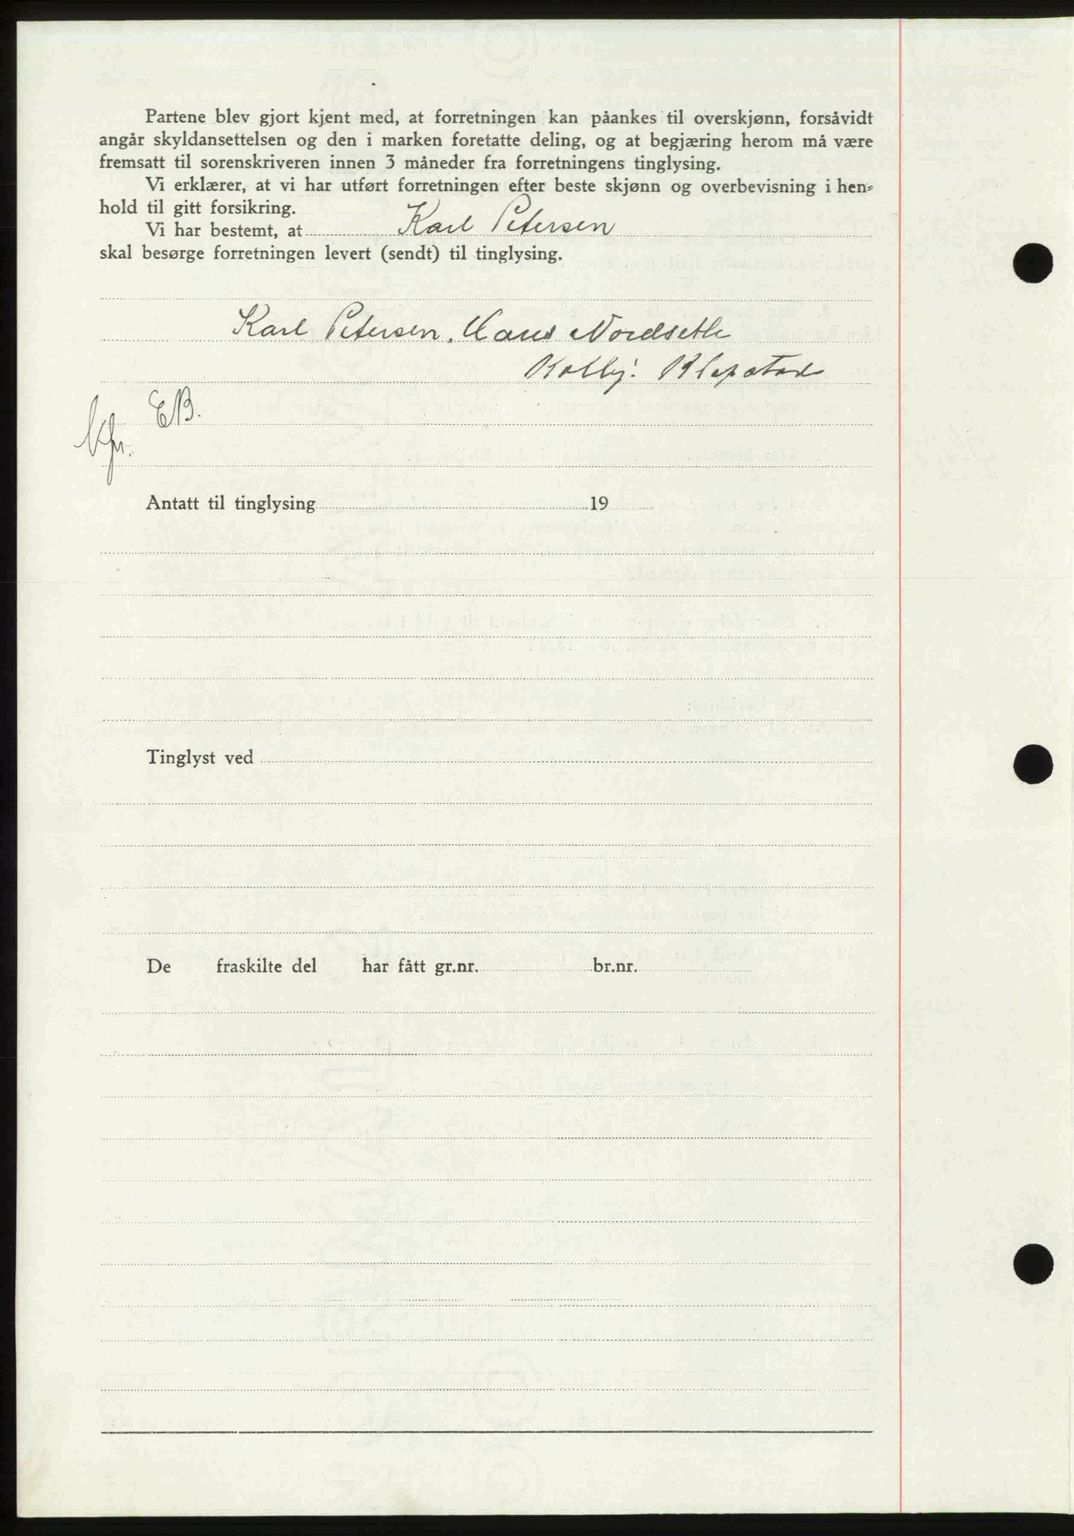 Partene blev gjort kjent med, at forretningen kan påankes til overskjønn, forsåvidt
angår skyldansettelsen og den i marken foretatte deling, og at begjæring herom må være
fremsatt til sorenskriveren innen 3 måneder fra forretningens tinglysing.
Vi erklærer, at vi har utført forretningen efter beste skjønn og overbevisning i hen-
hold til gitt forsikring.
Vi har bestemt, at Karl Petersen
skal besørge forretningen levert (sendt) til tinglysing.
Karl Petersen. Hans Nordseth
Kolbj. Klepstad
EB.
Kfr.
Antatt til tinglysing 19
Tinglyst ved
De fraskilte del har fått gr.nr. br.nr.